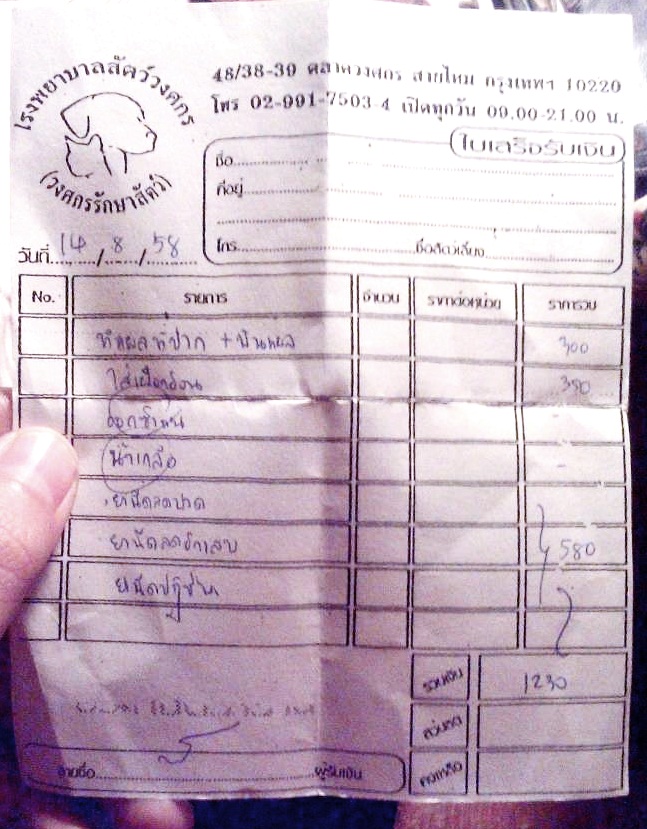 โรงพยาบาลสัตว์วงศกร
(วงศกรรักษาสัตว์)
48/38-39 ตลาดวงศกร สายไหม กรุงเทพฯ 10220
โทร 02-991-7503-4 เปิดทุกวัน 09.00-21.00 น.
ใบเสร็จรับเงิน
ชื่อ
ที่อยู่
โทร ชื่อสัตว์เลี้ยง
วันที่ 14 / 8 / 58
No. รายการ จำนวน ราคาต่อหน่วย ราคารวม
ทำแผลที่ปาก + พ่นแผล 300
ใส่เฝือกอ่อน 350
ออกซิเจน -
น้ำเกลือ -
ยาฉีดลดปวด
ยาฉีดลดอักเสบ 580
ยาฉีดปฏิชีวนะ
รวมเงิน 1230
ส่วนลด
คงเหลือ
ลายชื่อ ผู้รับเงิน